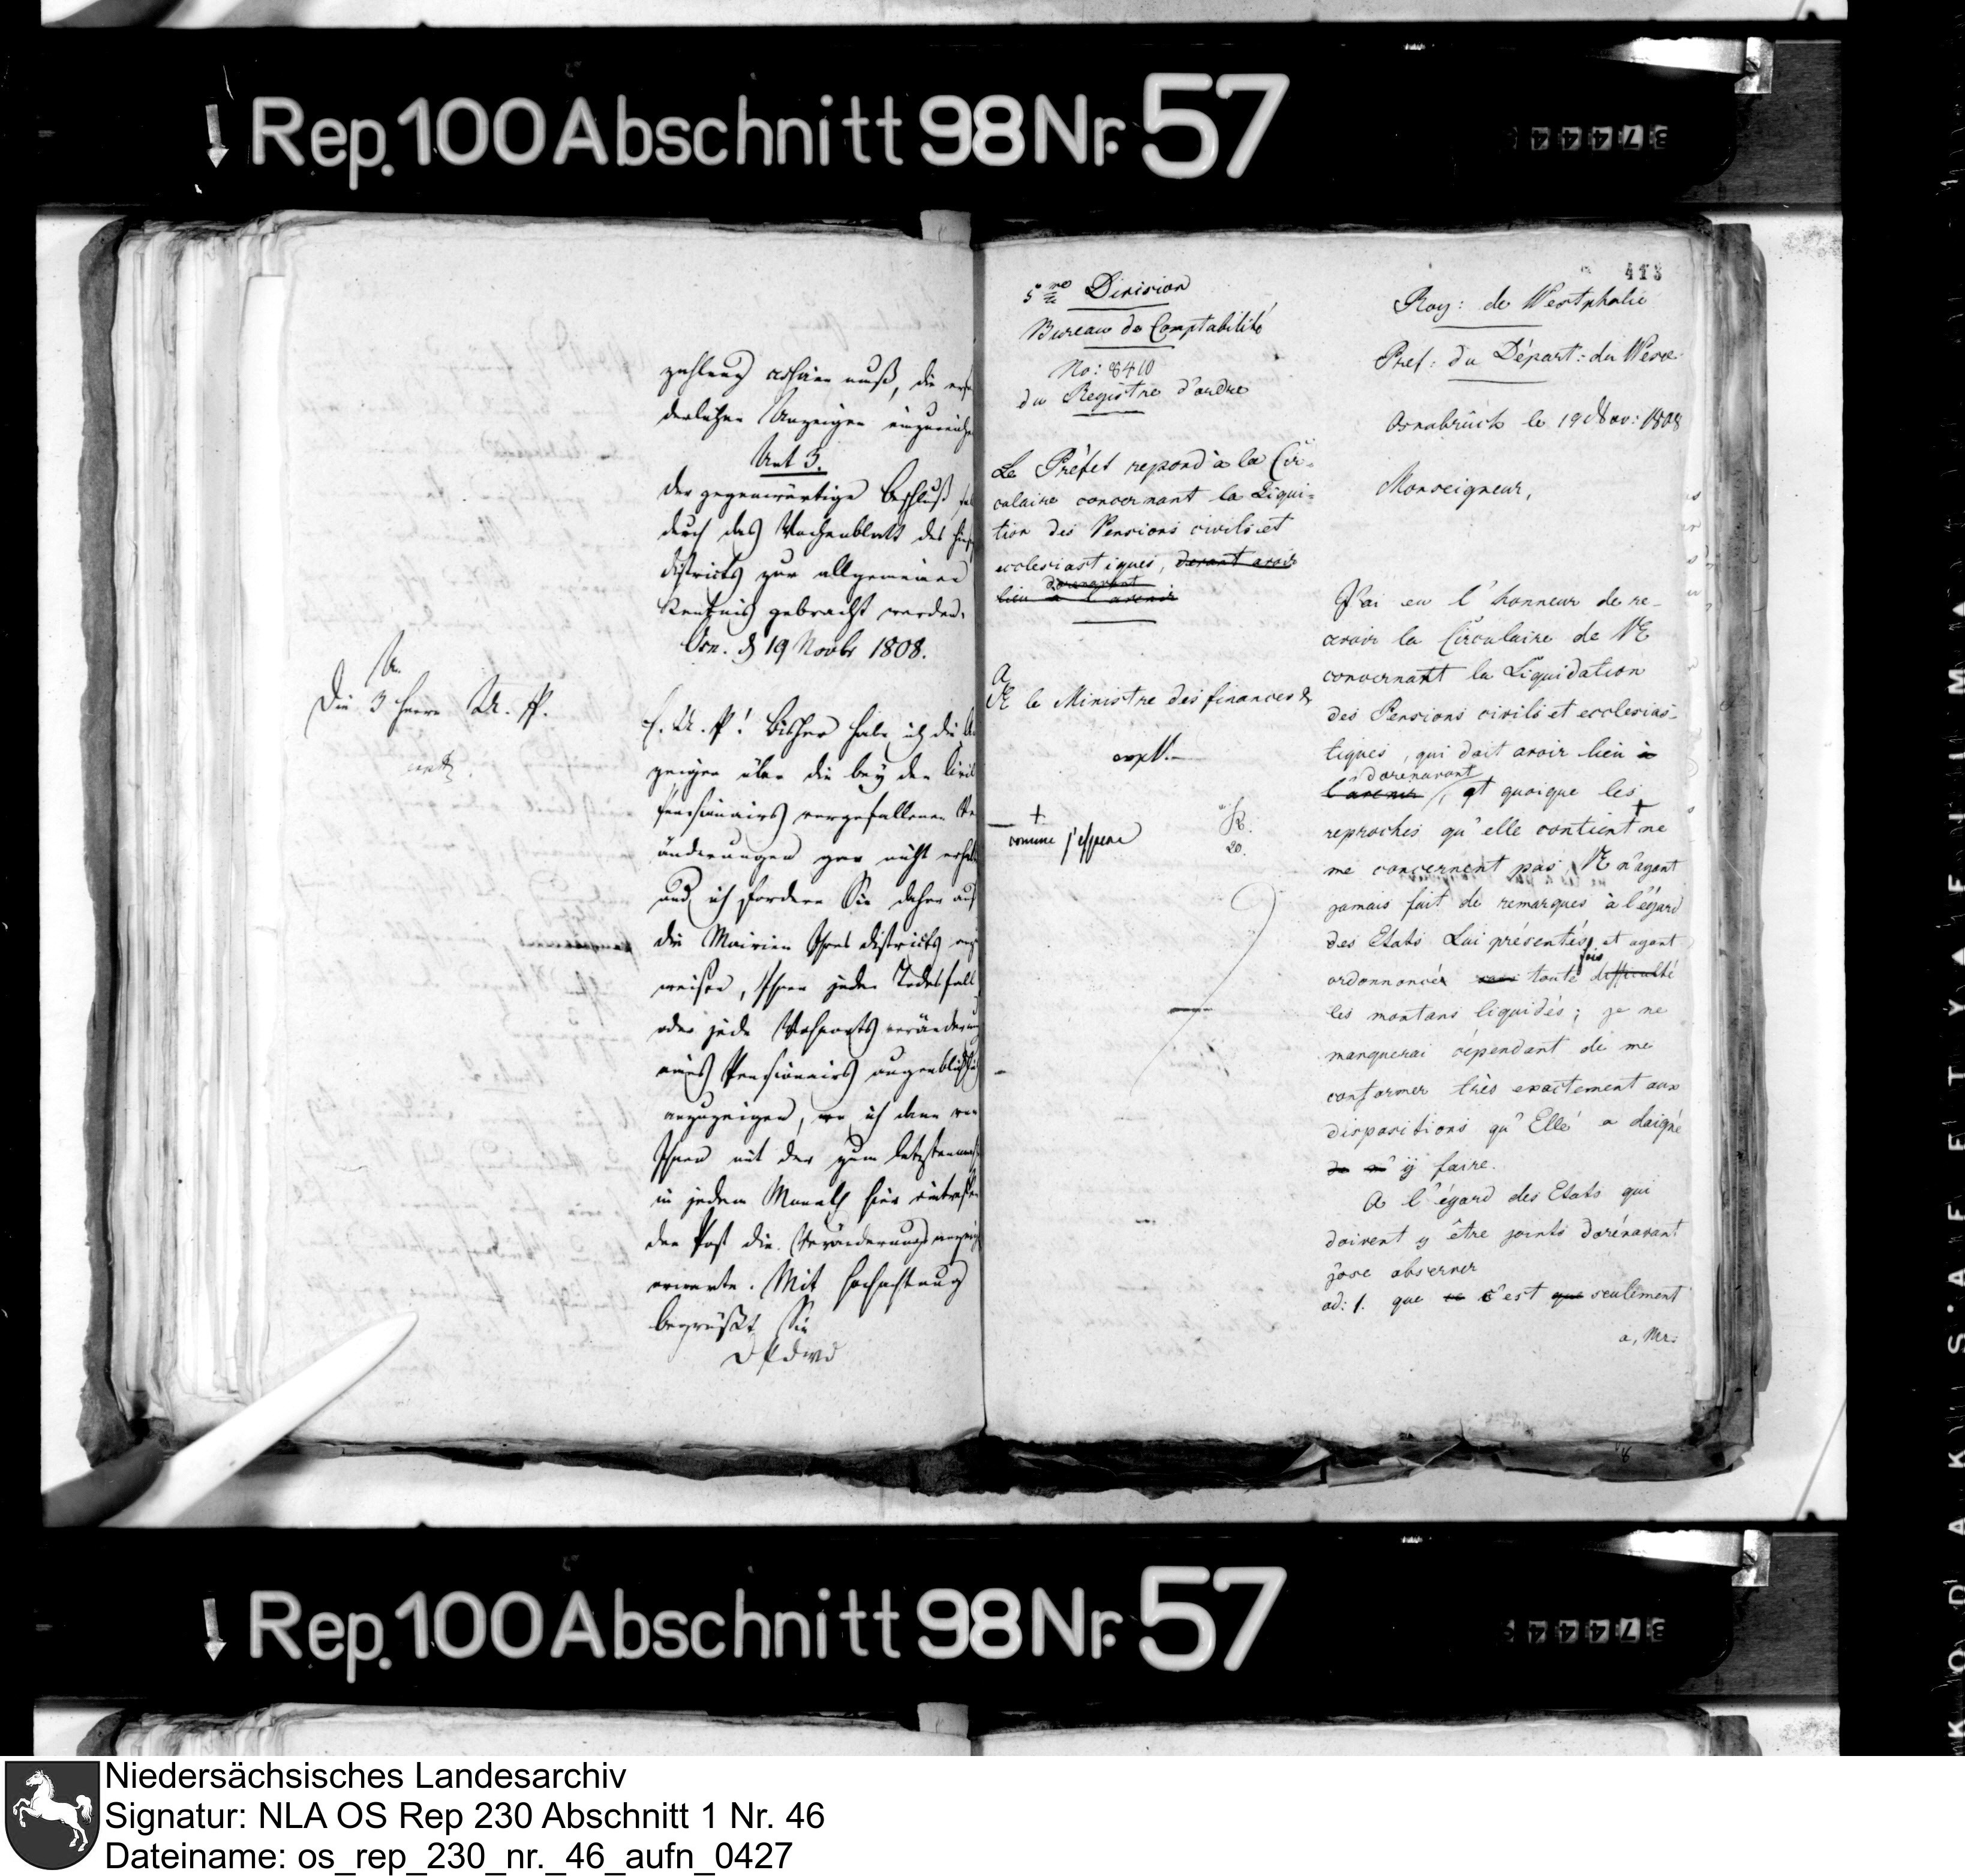 Rep. 100 Abschnitt 98 Nr. 57
37444
zahlung cessiren muß, die erfo
derlichen Anzeigen einzureichen
Art 3.
der gegenwärtige Beschluß soll
durch das Wochenblatt des hiesi
districts zur allgemeinen
Kenntnis gebracht werden.
Osn. d 19 Novbr 1808.
A.
Die 3 Herrn U. Pf.
H. U. Pf! Bisher habe ich die An
zeigen über die bey den Civil
pensionairs vorgefallenen Ver
änderungen gar nicht erhalten
und ich fordere Sie daher auf
die Mairien Ihres districts an
weisen, Ihnen jeden Todesfall
oder jede Wohnorts veränderung
eines Pensionairs augenblicklich
anzuzeigen, wo ich dann von
Ihnen mit der zum letztenmahl
in jedem Monath hier eintreffen
den Post die Veränderungsanzeige
erwarte. Mit Hochachtung
begrüßt Sie
413
5me Division
Bureau de Comptabilité
No: 8410
du Registre d'ordre
Le Préfet repond à la Cir-
culaire concernant la Liqui-
tion des Pensions civils et
ecclesiastiques, devant avoir
dorenavant
lieu à l'avenir
A
SE le Ministre des finances &
expd.
+
comme j'espere
R.
20.
Roy: de Westphalie
Pref: du Départ: du Weser
Osnabrück le 19 Nov: 1808
Monseigneur,
J'ai eu l'honneur de re-
cevoir la Circulaire de VE
concernant la Liquidation
des Pensions civils et ecclesias-
tiques, qui doit avoir lieu à
dorenavant
l'avenir, et quoique les
reproches qu'elle contient + ne
me concernent pas, VE n'ayant
jamais fait de remarques à l'égard
des Etats Lui présentés, et ayant
fois
ordonnancé sans toute difficulté
les montans liquidés; je ne
manquerai cépendant de me
conformer très exactement aux
dispositions qu'Elle a daigné
de m' ÿ faire.
A l'égard des Etats qui
doivent y être joints dorénavant
j'ose observer
ad: 1. que ce c'est que seulement
a, Mr:
Rep. 100 Abschnitt 98 Nr. 57
37444
Niedersächsisches Landesarchiv
Signatur: NLA OS Rep 230 Abschnitt 1 Nr. 46
Dateiname: os_rep_230_nr._46_aufn_0427